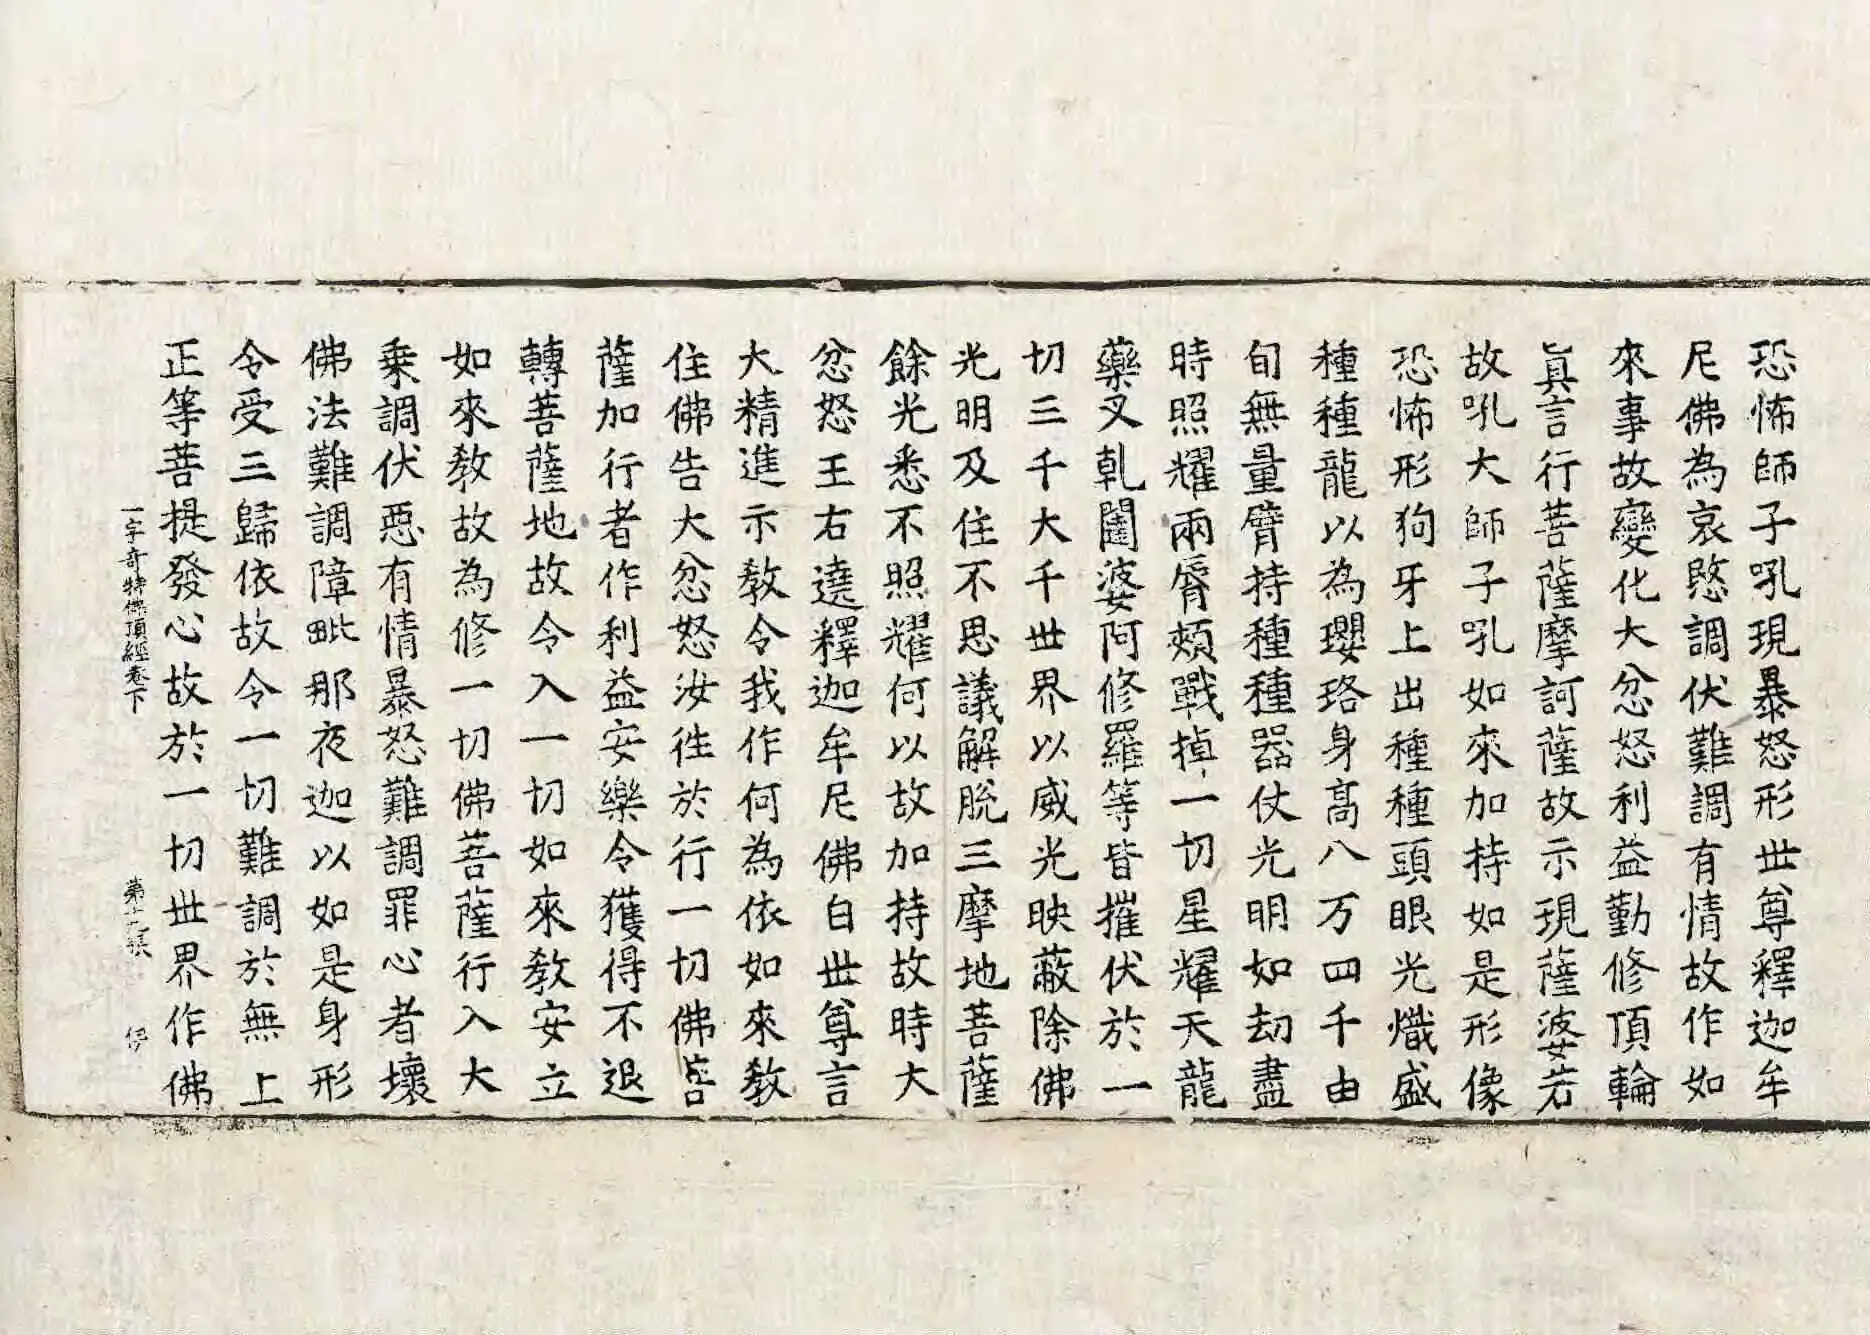 恐怖師子吼現暴怒形世尊釋迦牟
尼佛為哀愍調伏難調有情故作如
來事故變化大忿怒利益勤修頂輪
眞言行菩薩摩訶薩故示現薩婆若
故吼大師子吼如來加持如是形像
恐怖形狗牙上出種種頭眼光熾盛
種種龍以為瓔珞身高八万四千由
旬無量臂持種種器仗光明如劫盡
時照耀兩脣頰戰掉一切星耀天龍
藥叉乹闥婆阿修羅等皆摧伏於一
切三千大千世界以威光映蔽除佛
光明及住不思議解脫三摩地菩薩
餘光悉不照耀何以故加持故時大
忿怒王右遶釋迦牟尼佛白世尊言
大精進示教令我作何為依如來教
住佛告大忿怒汝徃於行一切佛菩
薩加行者作利益安樂令獲得不退
轉菩薩地故令入一切如來教安立
如來教故為修一切佛菩薩行入大
乗調伏惡有情暴怒難調罪心者壞
佛法難調障毗那夜迦以如是身形
令受三歸依故令一切難調於無上
正等菩提發心故於一切世界作佛
一字奇特佛頂經卷下 第十張